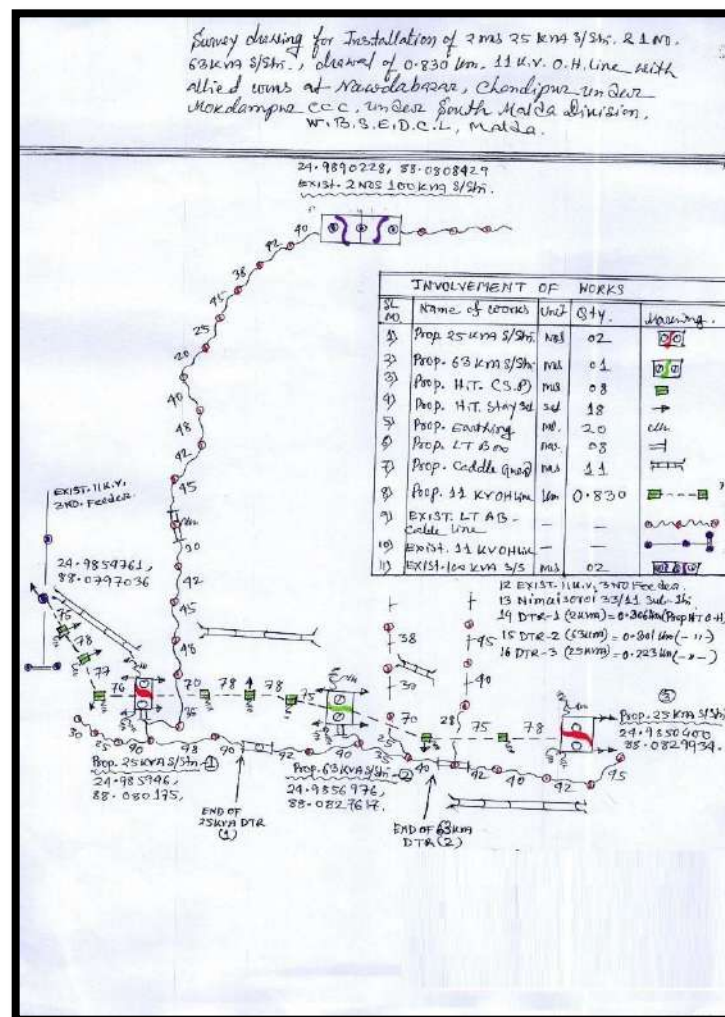 Survey drawing for Installation of 2 nos 25 KVA S/Stn. & 1 NO.
63KVA S/Stn., drawal of 0.830 km. 11 K.V. O.H. line with
allied works at Nawdabazar, Chandipur under
Mokdampur CCC, under South Malda Division,
W.B.S.E.D.C.L, Malda.
24.9890228, 88.0808429
EXIST. 2 NOS 100 KVA S/Stn.
INVOLVEMENT OF WORKS
SL NO. Name of works Unit Qty. Marking.
1) Prop. 25 KVA S/Stn. Nos 02
2) Prop. 63 KVA S/Stn nos 01
3) Prop. H.T. (S.P) nos 08
4) Prop. H.T. Stay Set set 18
5) Prop. Earthing no. 20
6) Prop. LT Box nos. 08
7) Prop. Caddle Guard nos 11
8) Prop. 11 KVOH line km 0.830
9) EXIST. LT AB- — —
Cable line
10) EXIST. 11 KVOH line — —
11) EXIST. 100 KVA S/S nos 02
12 EXIST. 11 K.V. 3 NO Feeder.
13 Nimaisorai 33/11 Sub-Stn
14 DTR-1 (25KVA) = 0.306 km (Prop HT O-H)
15 DTR-2 (63KVA) = 0.301 km (-"-)
16 DTR-3 (25KVA) = 0.223 km (-"-)
40
42
38
45
25
20
40
48
42
45
20
42
45
48
70
35
EXIST. 11 K.V.
3 NO. Feeder.
24.9854761,
88.0797036
75
78
77
76
78
78
75
70
75
78
38
39
45
40
28
25
30
25
40
48
40
42
40
35
40
42
40
42
45
Prop. 25 KVA S/Stn-1
24.985946,
88.080175,
Prop. 63 KVA S/Stn-2
24.9856976,
88.0827617.
3
Prop. 25 KVA S/Stn
24.9850400
88.0829934.
END OF
25KVA DTR
(1)
END OF 63KVA
DTR (2)